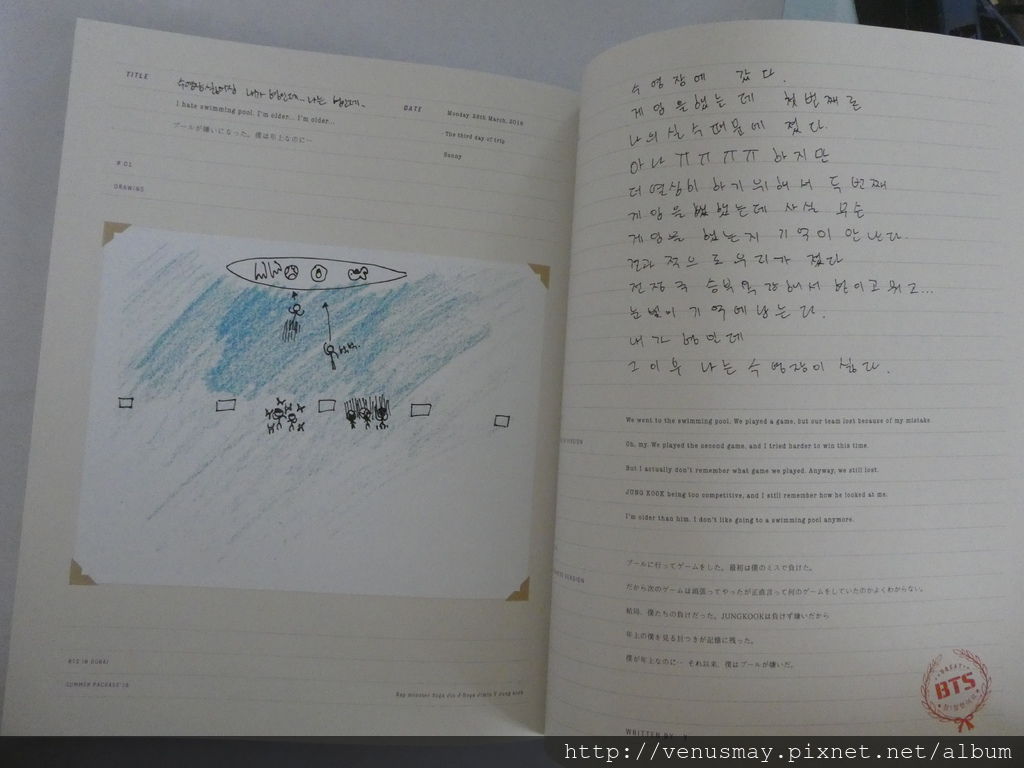 TITLE
수영장 싫어 내가 형인데... 나는 형인데..
I hate swimming pool. I'm older... I'm older...
プールが嫌いになった。僕は年上なのに…
DATE
Monday. 28th March, 2016
The third day of trip
Sunny
# 01
DRAWING
BTS IN DUBAI
SUMMER PACKAGE'16
Rap monster Suga Jin J-Hope Jimin V Jung kook
수영장에 갔다.
게임을 했는데 첫번째로
나의 실수 때문에 졌다.
아나 ㅠㅠㅠㅠ 하지만
더 열심히 하기위해서 두번째
게임을 했었는데 사실 무슨
게임을 했는지 기억이 안난다.
결과적으로 우리가 졌다
전정국 승부욕 강해서 형이고 뭐고...
눈빛이 기억에남는다.
내가 형인데
그 이후 나는 수영장이 싫다.
VERSION
We went to the swimming pool. We played a game, but our team lost because of my mistake.
Oh, my. We played the second game, and I tried harder to win this time.
But I actually don't remember what game we played. Anyway, we still lost.
JUNG KOOK being too competitive, and I still remember how he looked at me.
I'm older than him. I don't like going to a swimming pool anymore.
VERSION
プールに行ってゲームをした。最初は僕のミスで負けた。
だから次のゲームは頑張ってやったが正直言って何のゲームをしていたのかよくわからない。
結局、僕たちの負けだった。JUNGKOOKは負けず嫌いだから
年上の僕を見る目つきが記憶に残った。
僕が年上なのに… それ以来、僕はプールが嫌いだ。
GREAT!
BTS
참! 잘했어요
WRITTEN BY V
http://venusmay.pixnet.net/album